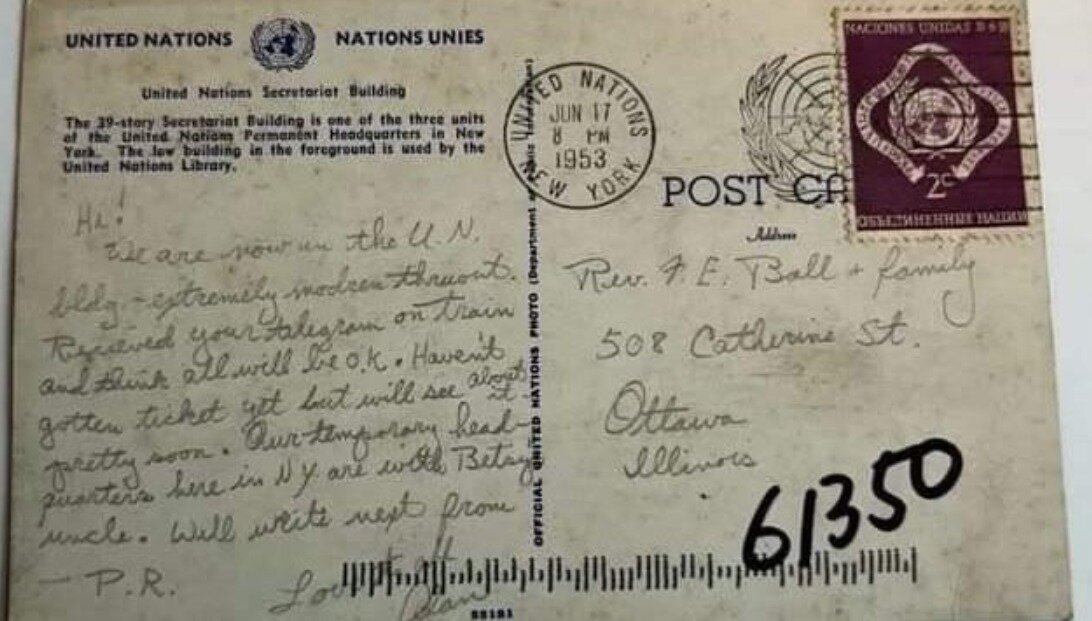 UNITED NATIONS NATIONS UNIES
United Nations Secretariat Building
The 39-story Secretariat Building is one of the three units
of the United Nations Permanent Headquarters in New
York. The low building in the foreground is used by the
United Nations Library.
Hi!
We are now in the U.N.
bldg - extremely modren thruout.
Recieved your telegram on train
and think all will be O.K. Haven't
gotten ticket yet but will see about it
pretty soon. Our temporary head-
quarters here in NY are with Betsy
uncle. Will write next from
- P.R.
Love
Jean
OFFICIAL UNITED NATIONS PHOTO (Department of Public Information)
UNITED NATIONS
JUN 17
8 PM
1953
NEW YORK
POST CA
Address
NACIONES UNIDAS
2c
ОБЪЕДИНЕННЫЕ НАЦИИ
Rev. F. E. Ball + family
508 Catherine St.
Ottawa
Illinois
61350